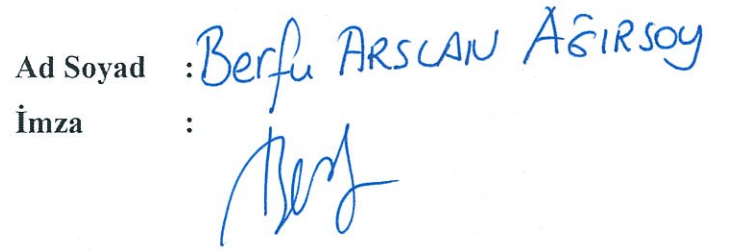 Ad Soyad : Berfu ARSLAN AĞIRSOY
İmza :
Berf